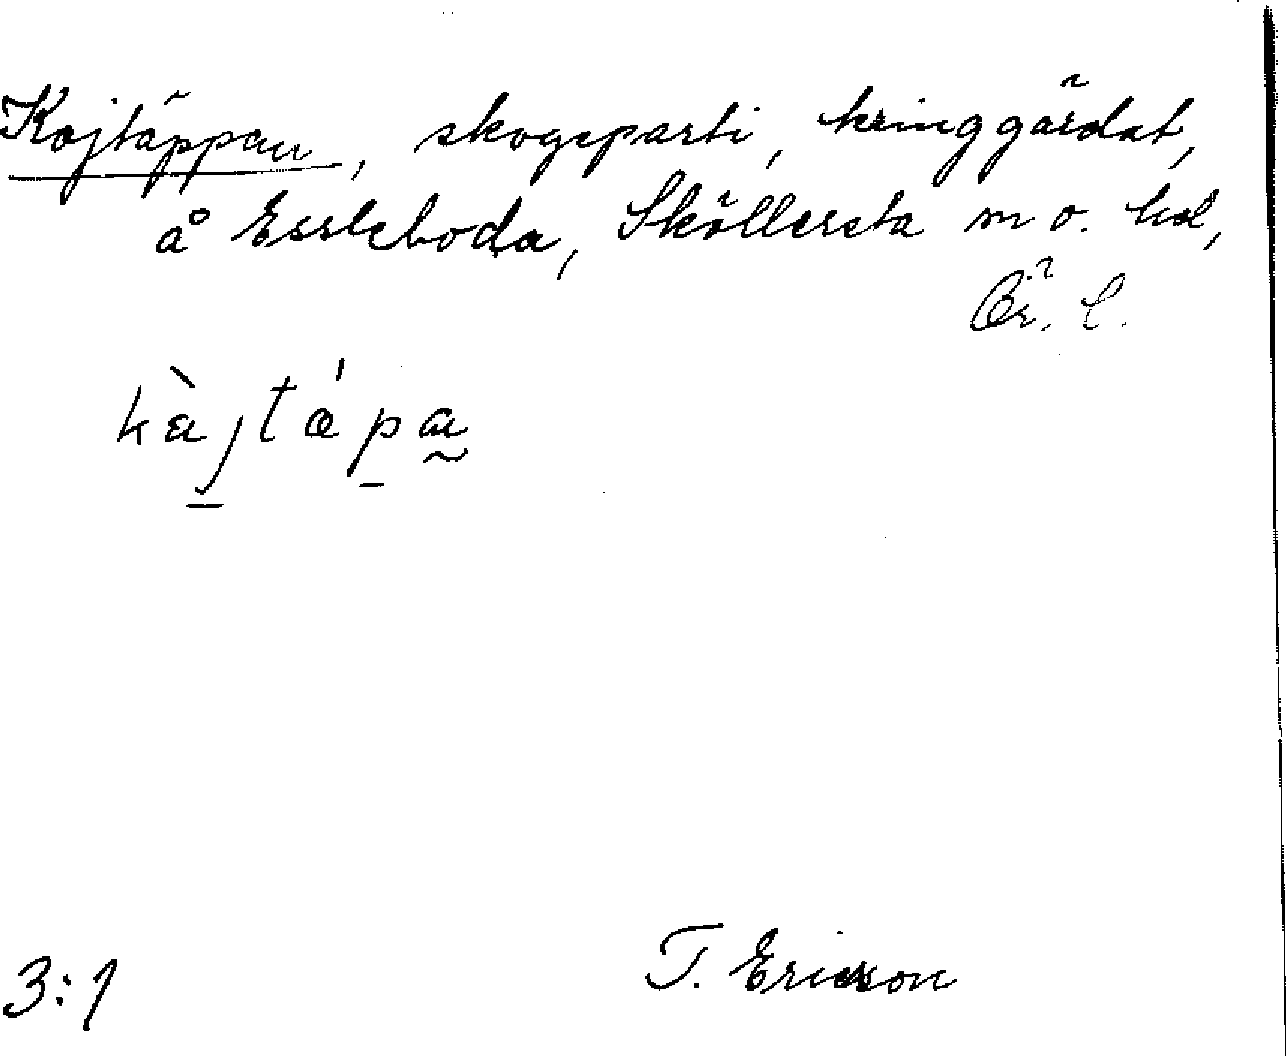 Kajtäppan, skogsparti, kringgärdat,
å Essleboda, Sköllersta sn o. hd,
Ör. l.
kàjtápa
3:1
T. Ericsson